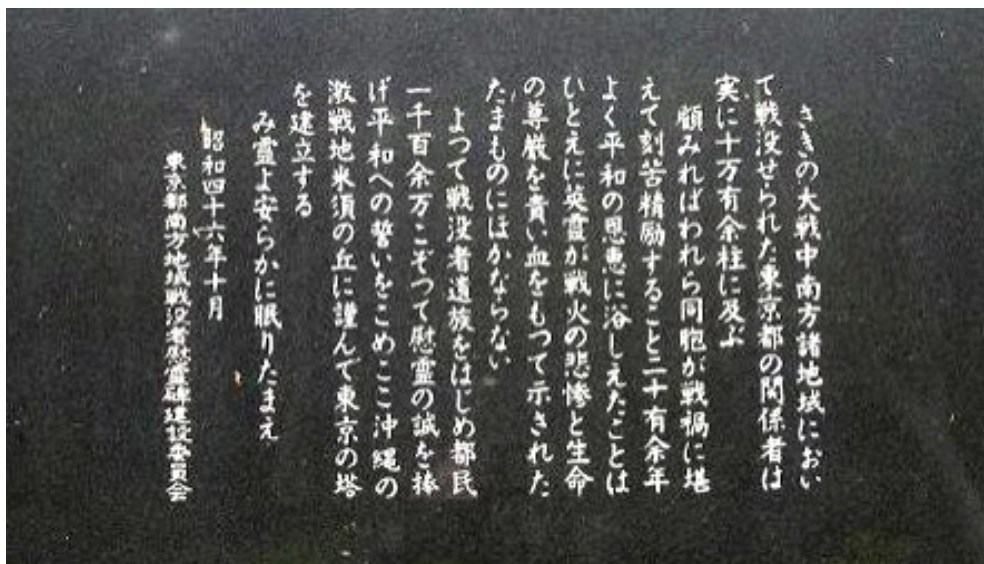 さきの大戦中南方諸地域におい
て戦没せられた東京都の関係者は
実に十万有余柱に及ぶ
顧みればわれら同胞が戦禍に堪
えて刻苦精励すること二十有余年
よく平和の恩恵に浴しえたことは
ひとえに英霊が戦火の悲惨と生命
の尊厳を貴い血をもつて示された
たまものにほかならない
よつて戦没者遺族をはじめ都民
一千百余万こぞつて慰霊の誠を捧
げ平和への誓いをこめここ沖縄の
激戦地米須の丘に謹んで東京の塔
を建立する
み霊よ安らかに眠りたまえ
昭和四十六年十月
東京都南方地域戦没者慰霊碑建設委員会